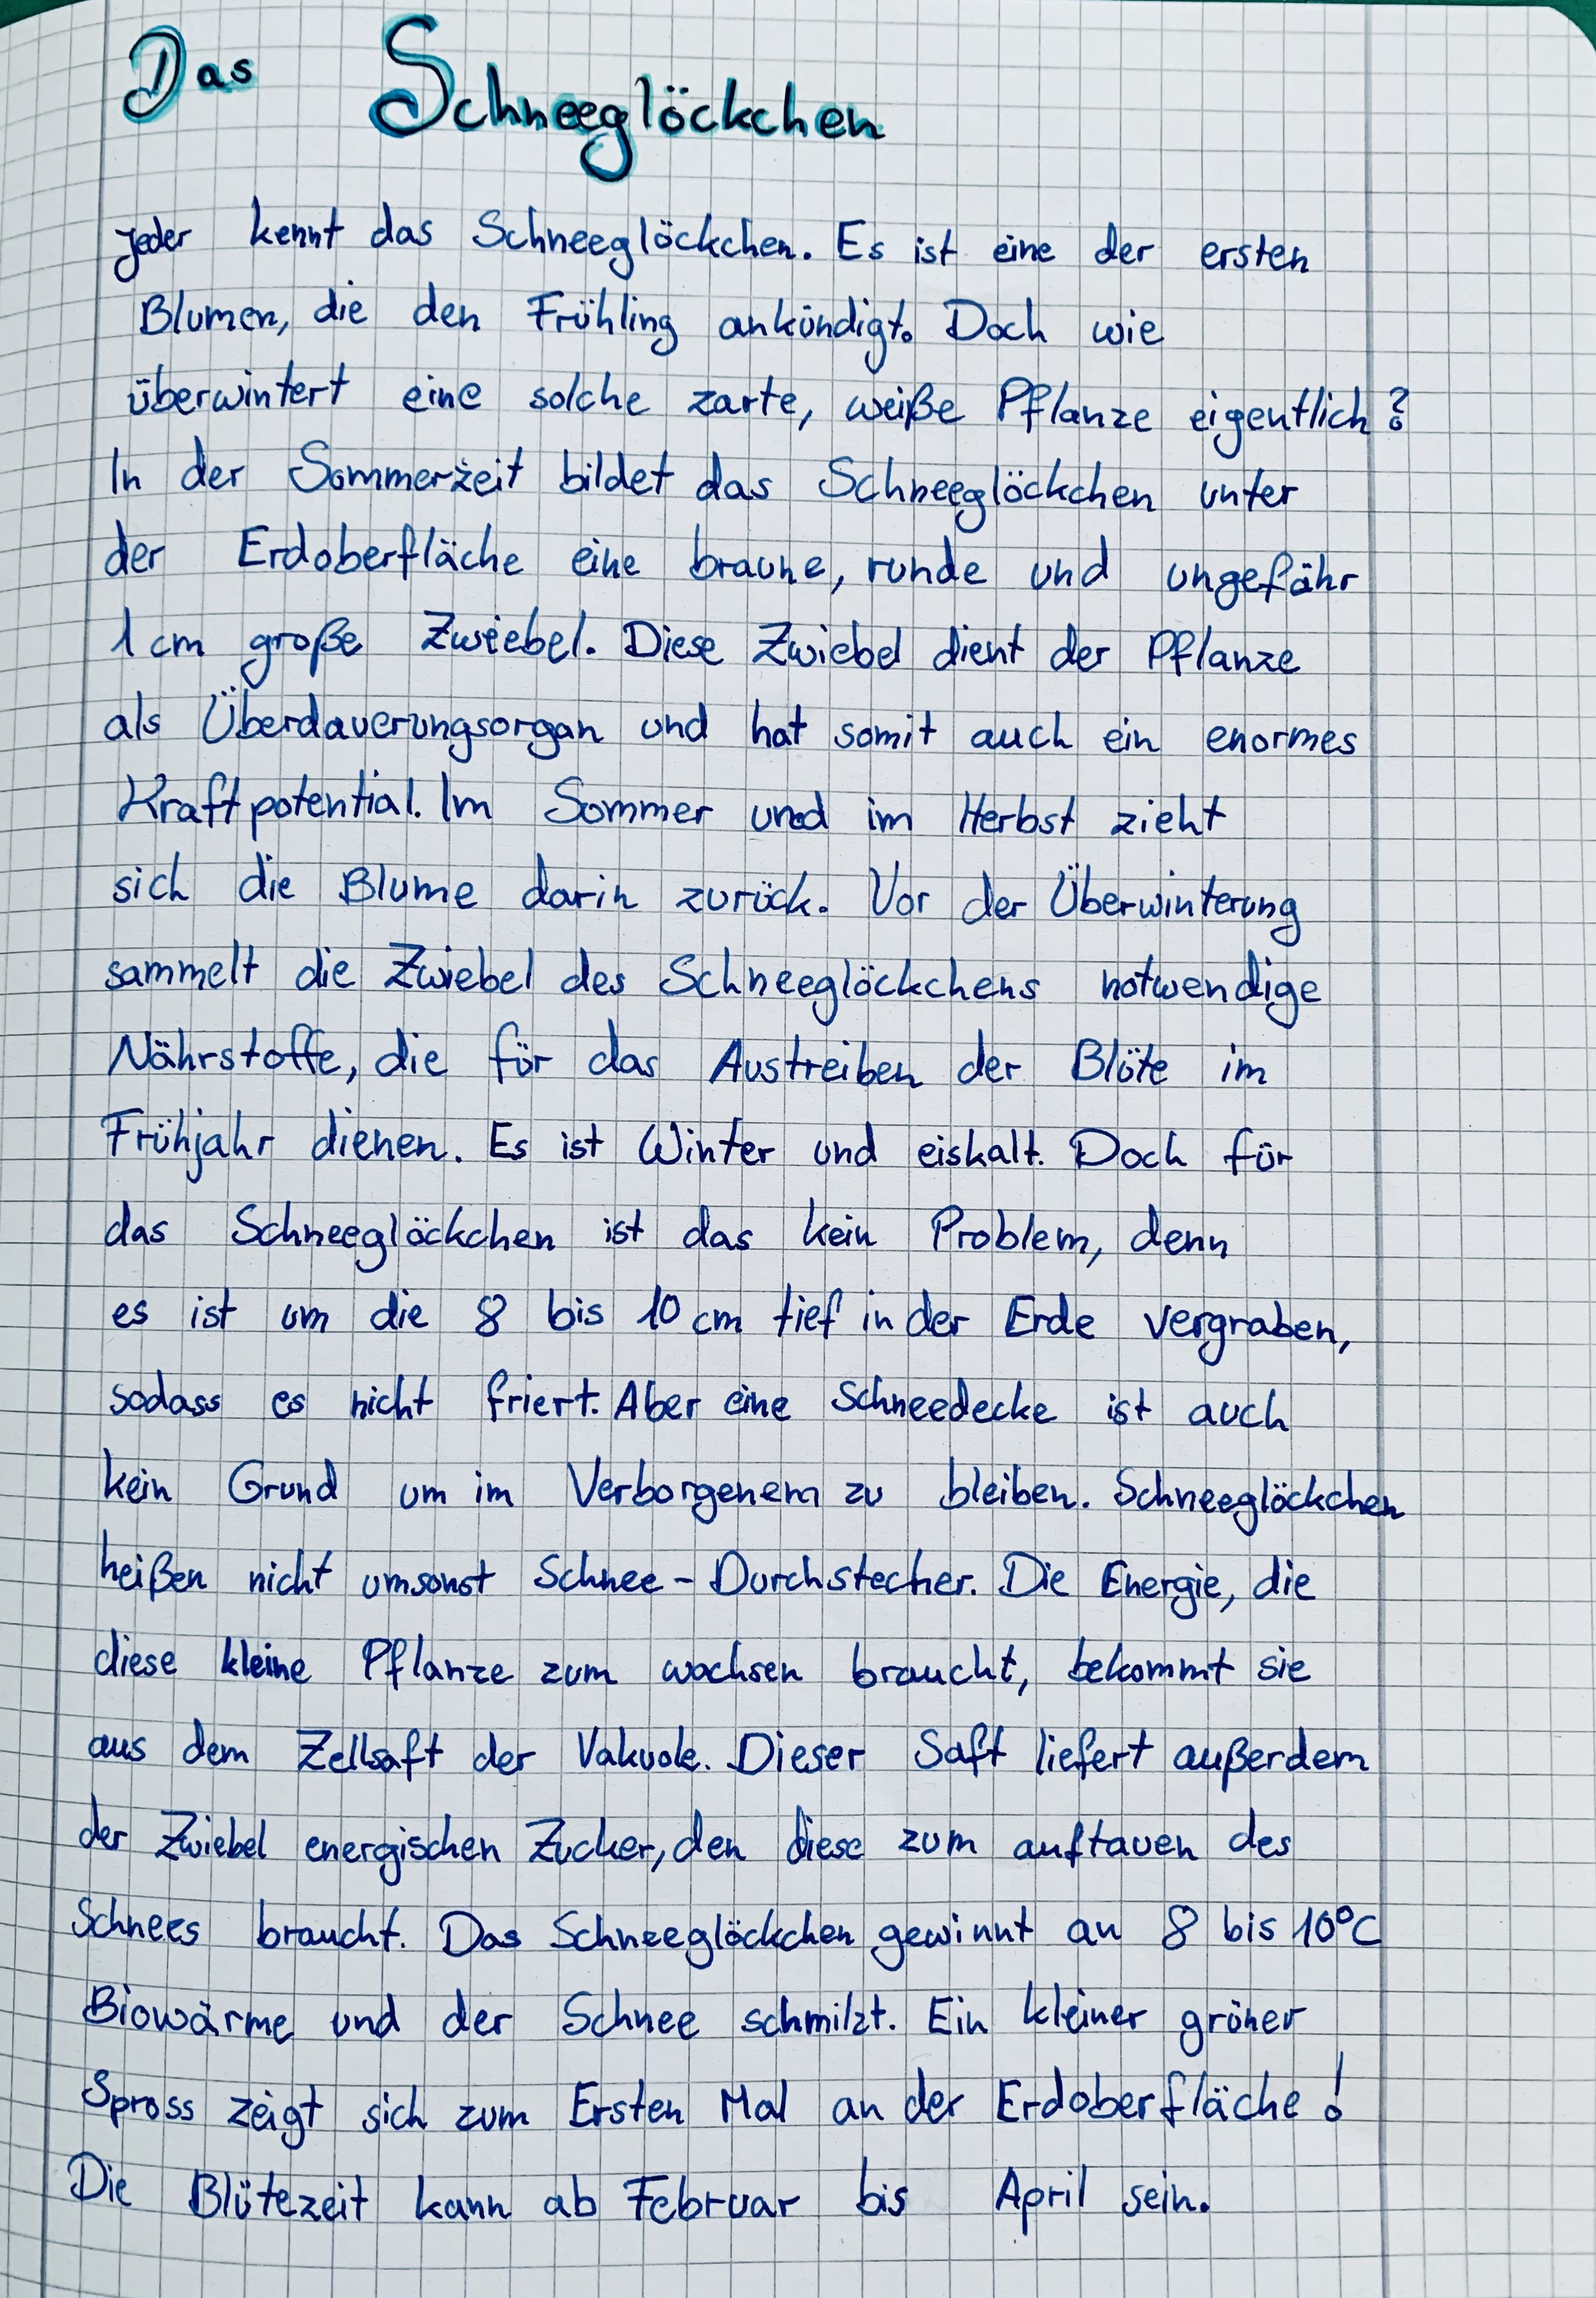 Das Schneeglöckchen
jeder kennt das Schneeglöckchen. Es ist eine der ersten
Blumen, die den Frühling ankündigt. Doch wie
überwintert eine solche zarte, weiße Pflanze eigentlich?
In der Sommerzeit bildet das Schneeglöckchen unter
der Erdoberfläche eine braune, runde und ungefähr
1 cm große Zwiebel. Diese Zwiebel dient der Pflanze
als Überdauerungsorgan und hat somit auch ein enormes
Kraftpotential. Im Sommer und im Herbst zieht
sich die Blume darin zurück. Vor der Überwinterung
sammelt die Zwiebel des Schneeglöckchens notwendige
Nährstoffe, die für das Austreiben der Blüte im
Frühjahr dienen. Es ist Winter und eiskalt. Doch für
das Schneeglöckchen ist das kein Problem, denn
es ist um die 8 bis 10 cm tief in der Erde vergraben,
sodass es nicht friert. Aber eine Schneedecke ist auch
kein Grund um im Verborgenem zu bleiben. Schneeglöckchen
heißen nicht umsonst Schnee-Durchstecher. Die Energie, die
diese kleine Pflanze zum wachsen braucht, bekommt sie
aus dem Zellsaft der Vakuole. Dieser Saft liefert außerdem
der Zwiebel energischen Zucker, den diese zum auftauen des
Schnees braucht. Das Schneeglöckchen gewinnt an 8 bis 10°C
Biowärme und der Schnee schmilzt. Ein kleiner grüner
Spross zeigt sich zum Ersten Mal an der Erdoberfläche!
Die Blütezeit kann ab Februar bis April sein.